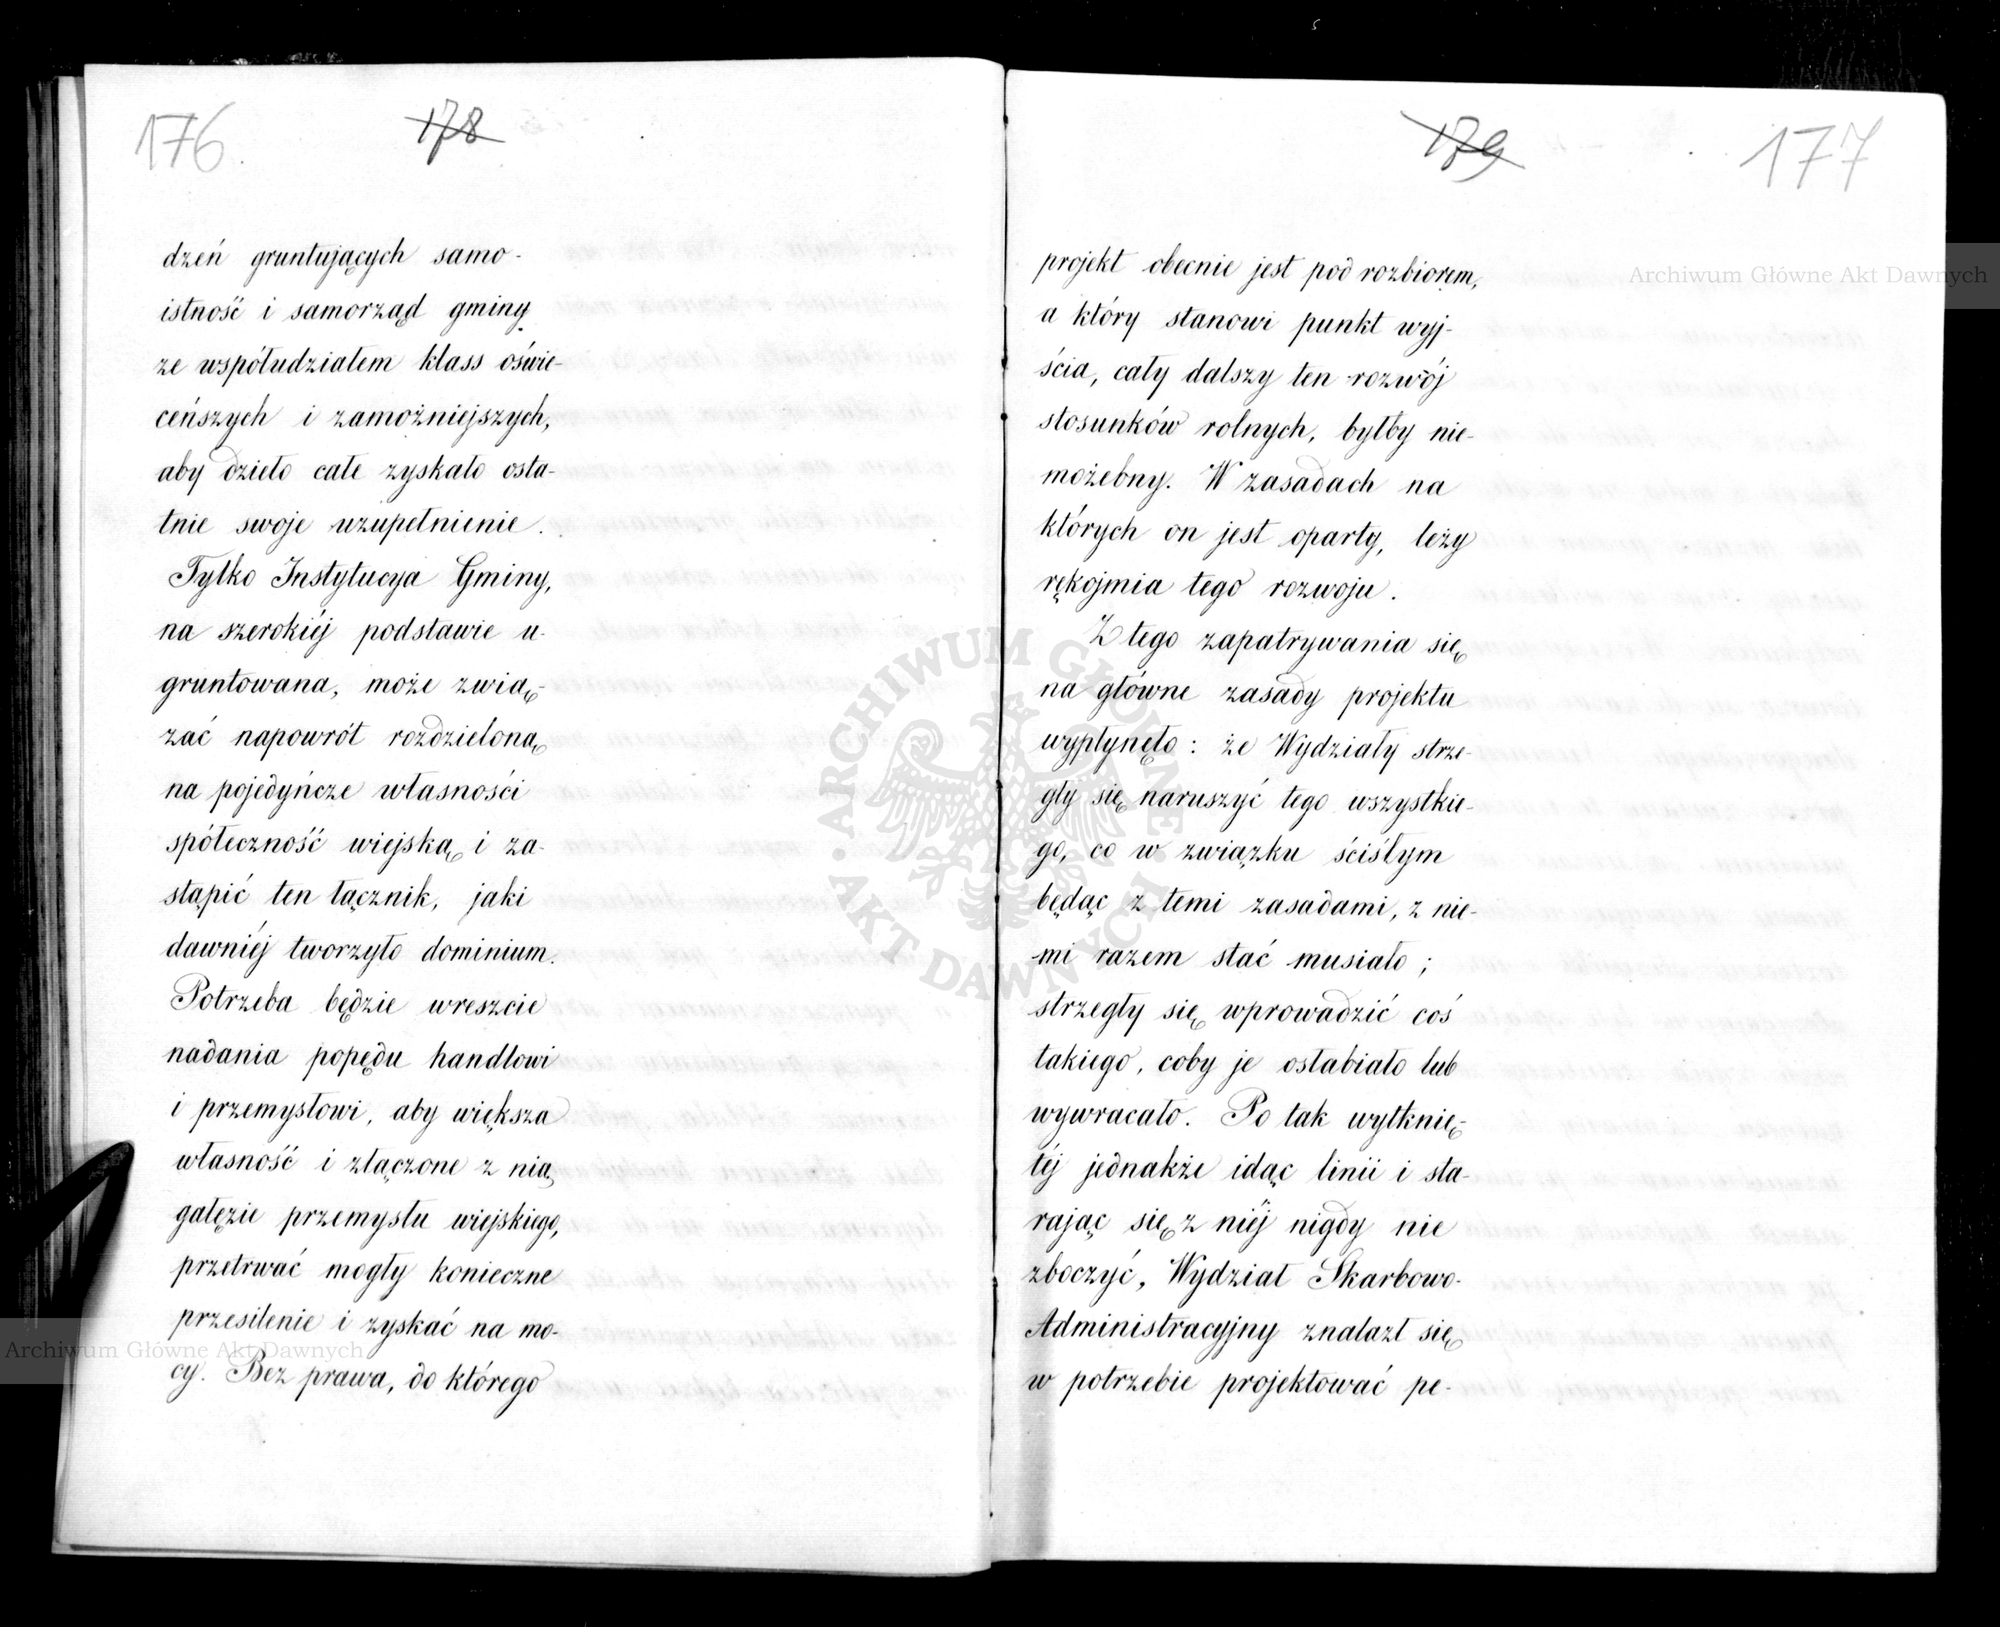 176
178
dzeń gruntujących samo-
istność i samorząd gminy
ze współudziałem klass oświe-
ceńszych i zamożniejszych,
aby dzieło całe zyskało osta-
tnie swoje uzupełnienie.
Tylko Instytucya Gminy,
na szerokiéj podstawie u-
gruntowana, może zwią-
zać napowrót rozdzieloną
na pojedyńcze własności
spółeczność wiejską i za-
stąpić ten łącznik, jaki
dawniéj tworzyło dominium.
Potrzeba będzie wreszcie
nadania popędu handlowi
i przemysłowi, aby większa
własność i złączone z nią
gałęzie przemysłu wiejskiego,
przetrwać mogły konieczne
przesilenie i zyskać na mo-
cy. Bez prawa, do którego
179
177
projekt obecnie jest pod rozbiorem,
a który stanowi punkt wyj-
ścia, cały dalszy ten rozwój
stosunków rolnych, byłby nie-
możebny. W zasadach na
których on jest oparty, leży
rękojmia tego rozwoju.
Z tego zapatrywania się
na główne zasady projektu
wypłynęło: że Wydziały strze-
gły się naruszyć tego wszystkie-
go, co w związku ściśłym
będąc z temi zasadami, z nie-
mi razem stać musiało;
strzegły się wprowadzić coś
takiego, coby je osłabiało lub
wywracało. Po tak wytknię-
téj jednakże idąc linii i sta-
rając się z niéj nigdy nie
zboczyć, Wydział Skarbowo-
Administracyjny znalazł się
w potrzebie projektować pe-
Archiwum Główne Akt Dawnych
Archiwum Główne Akt Dawnych
ARCHIWUM GŁÓWNE AKT DAWNYCH